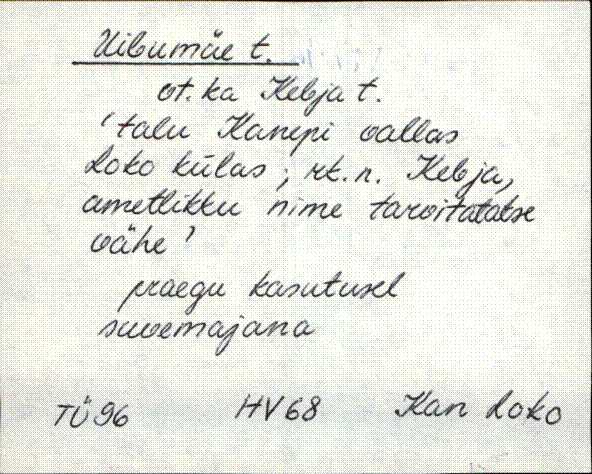 Uibumäe t.
vt. ka Kebja t.
'talu Kanepi vallas
Loko külas; rk. n. Kebja,
ametlikku nime tarvitatakse
vähe'
praegu kasutusel
suvemajana
TÜ 96 HV 68 Kan Loko